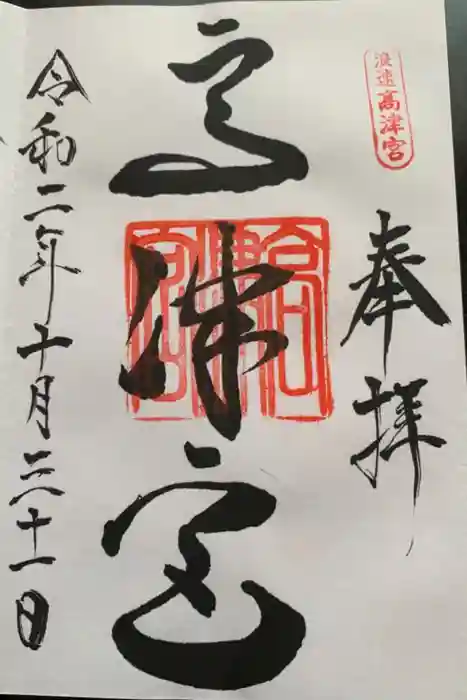 浪速
高津宮
奉拝
高津宮
高津宮
令和二年十月三十一日